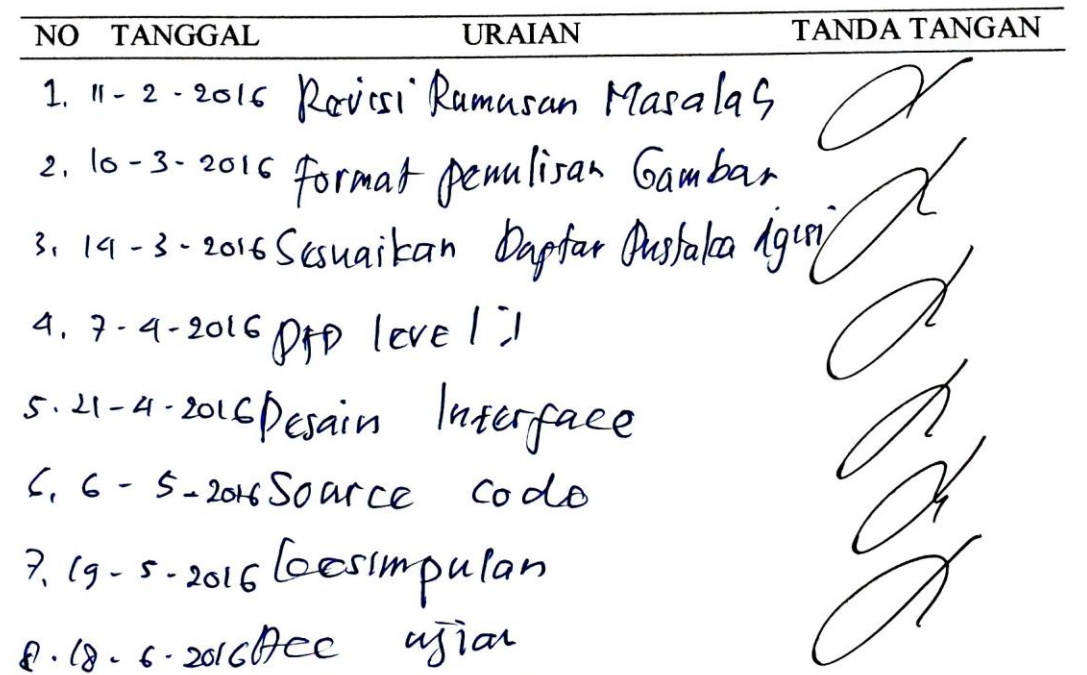 NO TANGGAL URAIAN TANDA TANGAN
1. 11-2-2016 Revisi Rumusan Masalah
2. 10-3-2016 Format penulisan Gambar
3. 14-3-2016 Sesuaikan Daptar Pustaka
4. 7-4-2016 DFD level 1
5. 21-4-2016 Desain Interface
6. 6-5-2016 Source code
7. 19-5-2016 kesimpulan
8. 18-6-2016 Acc ujian